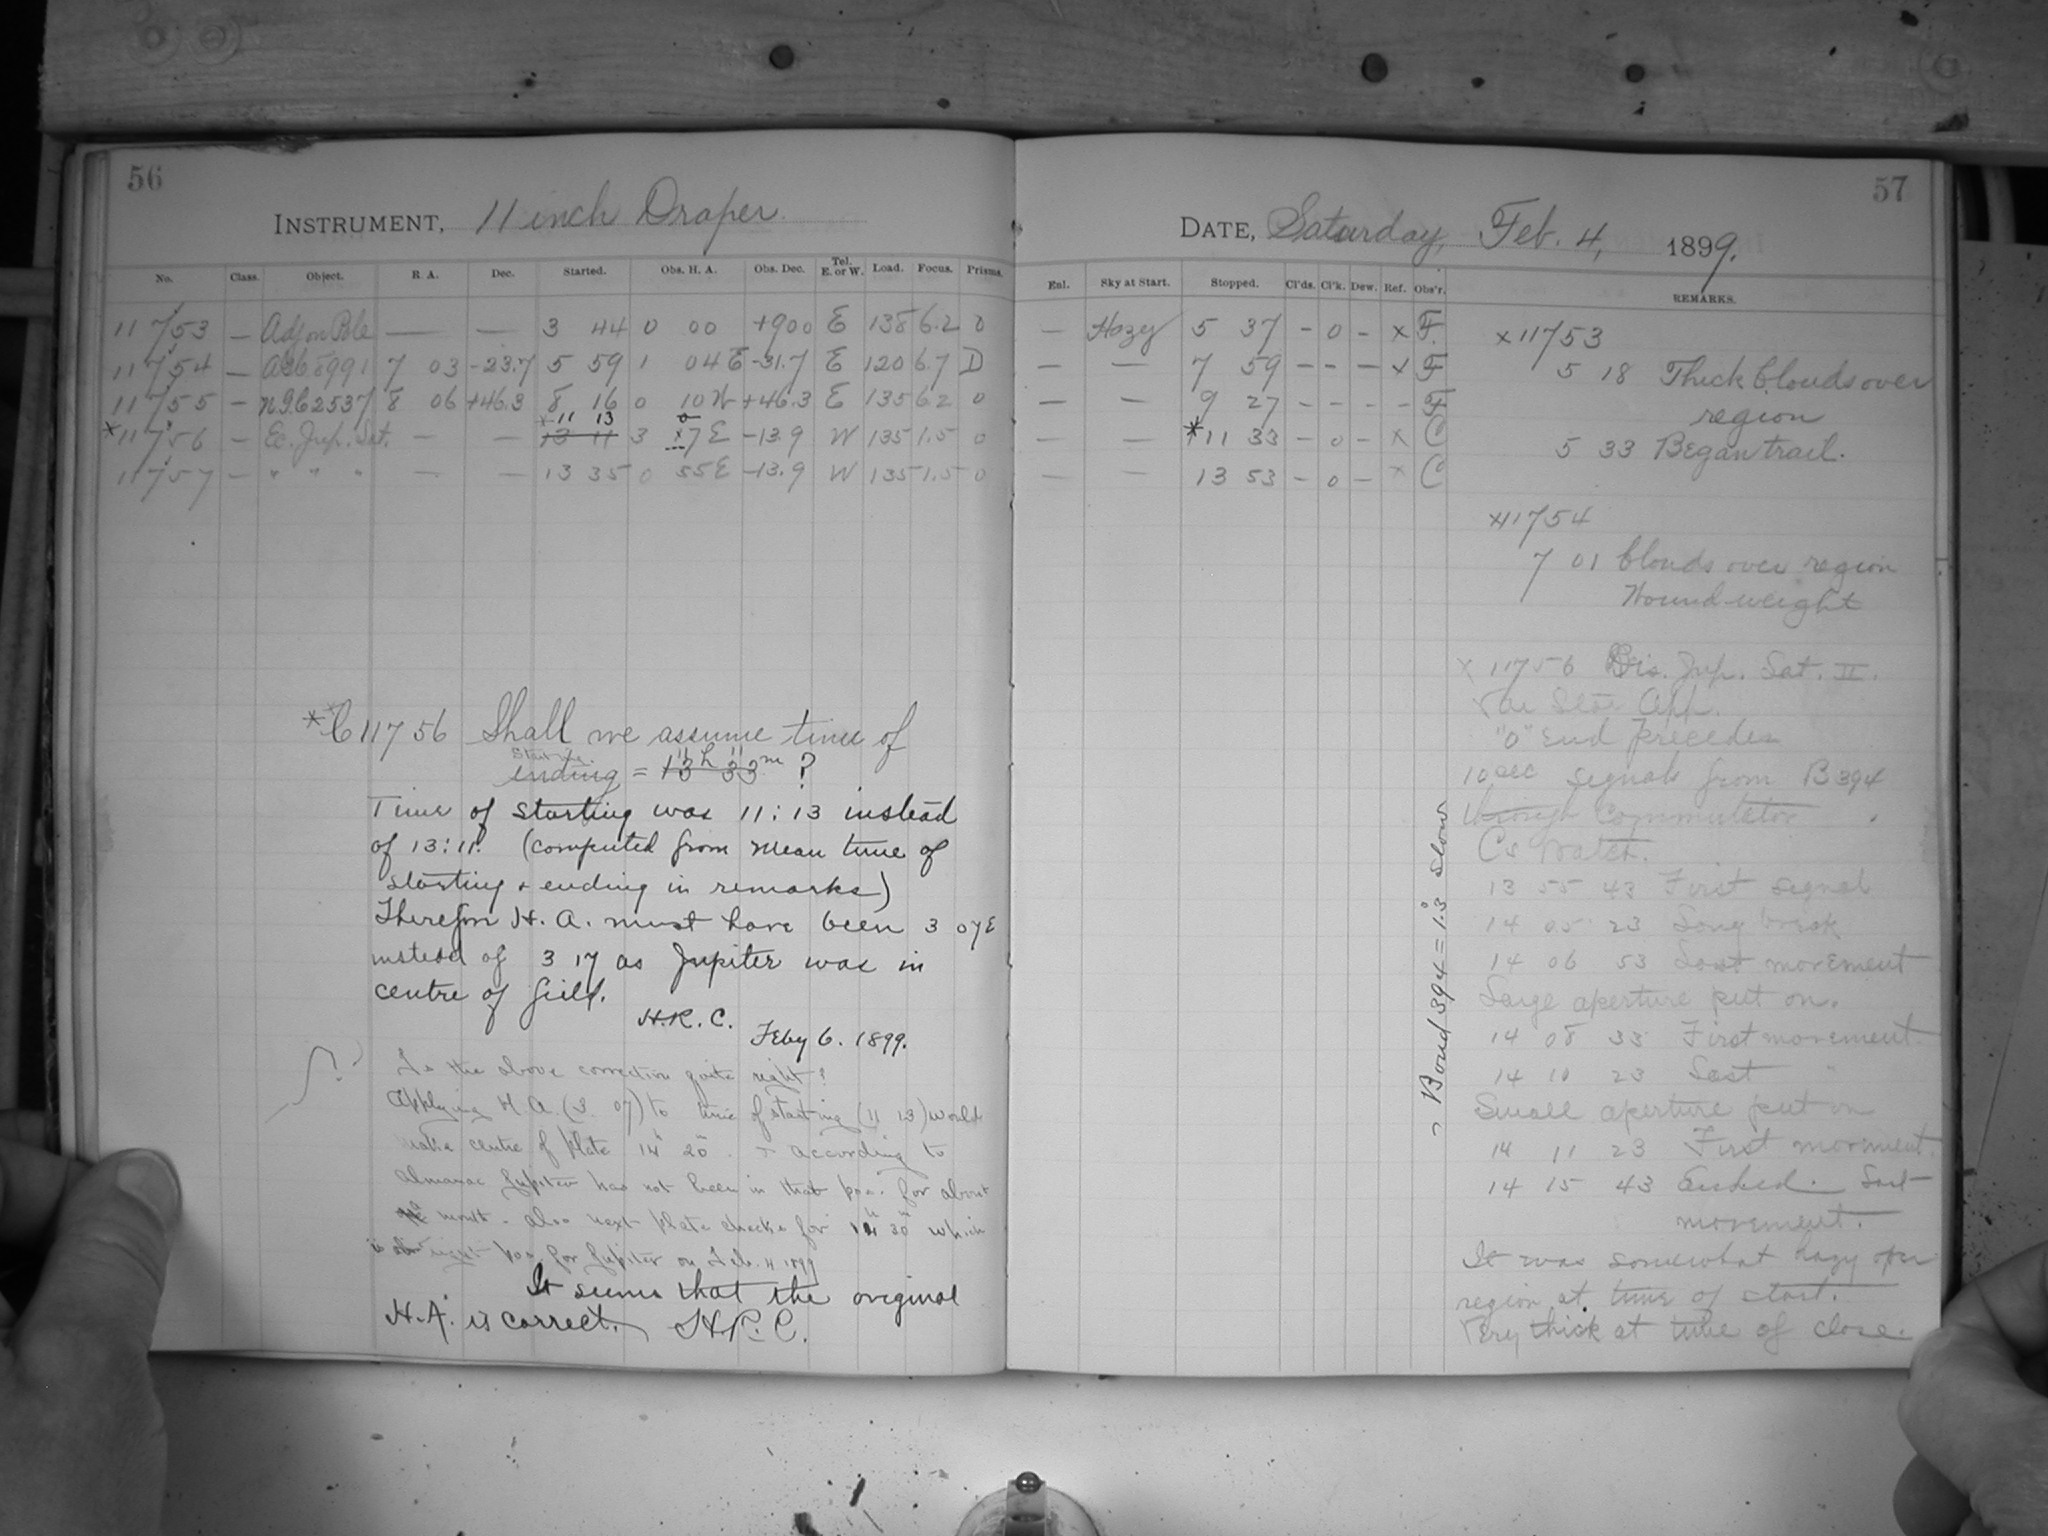 56
INSTRUMENT, 11 inch Draper.
No. Class. Object. R. A. Dec. Started. Obs. H. A. Obs. Dec. Tel. E. or W. Load. Focus. Prisms.
11753 — Adj on Pole — — 3 44 0 00 +900 E 138 6.2 0
11754 — 7 03 -23.7 5 59 1 04 E -31.7 E 120 6.7 D
11755 — N.G.C 2537 8 06 +46.3 8 16 0 10 W +46.3 E 135 6.2 0
x 11 13
*11756 — Ec. Jup. Sat. — — 13 11 3 7 E -13.9 W 135 1.5 0
11757 — " " " — — 13 35 0 55 E -13.9 W 135 1.5 0
* C 11756 Shall we assume time of
ending = 13h 33m ?
Time of starting was 11:13 instead
of 13:11. (computed from mean time of
starting + ending in remarks)
Therefor H. A. must have been 3 07E
instead of 3 17 as Jupiter was in
centre of field.
H.R.C.
Feby 6. 1899.
Is the above correction quite right?
Applying H.A. (3 07) to time of starting (11 13) would
make centre of plate 14h 20m. + according to
almanac Jupiter has not been in that pos. for about
month. also next plate checks for 14h 30m which
is right pos. for Jupiter on Feb. 4 1899
It seems that the original
H.A. is correct. H.R.C.
57
DATE, Saturday, Feb. 4, 1899.
Enl. Sky at Start. Stopped. Cl'ds. Cl'k. Dew. Ref. Obs'r. REMARKS.
— Hazy 5 37 - 0 - x F.
— — 7 59 - - - x F
— — 9 27 - - - - F
— — *11 33 - 0 - x C
— — 13 53 - 0 - x C
x11753
5 18 Thick Clouds over
region
5 33 Began trail.
x11754
7 01 Clouds over region
Wound weight
x 11756 Dis. Jup. Sat. II.
App.
"0" End precedes
10 sec signals from B394
through Commutator
C's Watch.
13 55 43 First signal
14 05 23 Long break
14 06 53 Last movement
Large aperture put on.
14 08 33 First movement
14 10 23 Last "
Small aperture put on
14 11 23 First movment.
14 15 43 Ended. Last
movement.
It was somewhat hazy over
region at time of start.
Very thick at time of close.
Bond 394 = 1.s3 slow